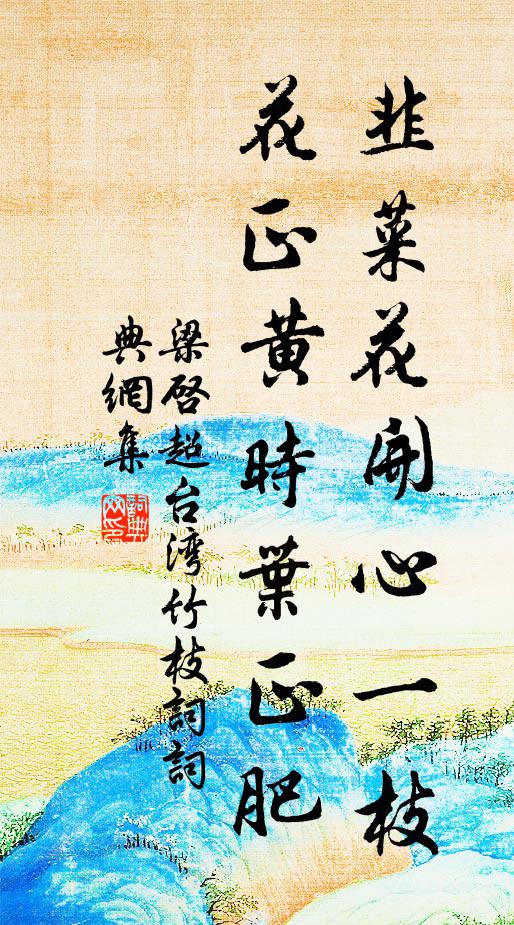 韭菜花開心一枝
花正黃時葉正肥
梁啓超台湾竹枝詞詞
典網集